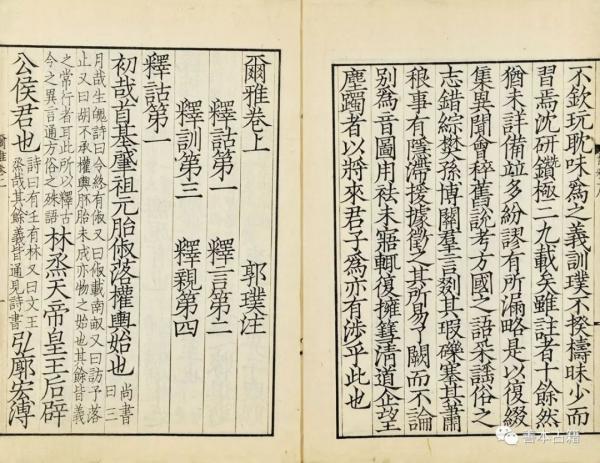 不欽玩耽味為之義訓璞不揆檮昧少而
習焉沈研鑽極二九載矣雖註者十餘然
猶未詳備竝多紛謬有所漏略是以復綴
集異聞會稡舊說考方國之語采謠俗之
志錯綜樊孫博關羣言剟其瑕礫搴其蕭
稂事有隱滯援據徵之其所易了闕而不論
別為音圖用祛未寤輒復擁篲清道企望
塵躅者以將來君子為亦有涉乎此也
爾雅卷上 郭璞注
釋詁第一 釋言第二
釋訓第三 釋親第四
釋詁第一
初哉首基肈祖元胎俶落權輿始也 尚書曰三
月哉生魄詩曰令終有俶又曰俶載南畝又曰訪予落
止又曰胡不承權輿胚胎未成亦物之始也其餘皆義
之常行者耳此所以釋古
今之異言通方俗之殊語 林烝天帝皇王后辟
公侯君也 詩曰有壬有林又曰文王
烝哉其餘義皆通見詩書 弘廓宏溥
善本古籍